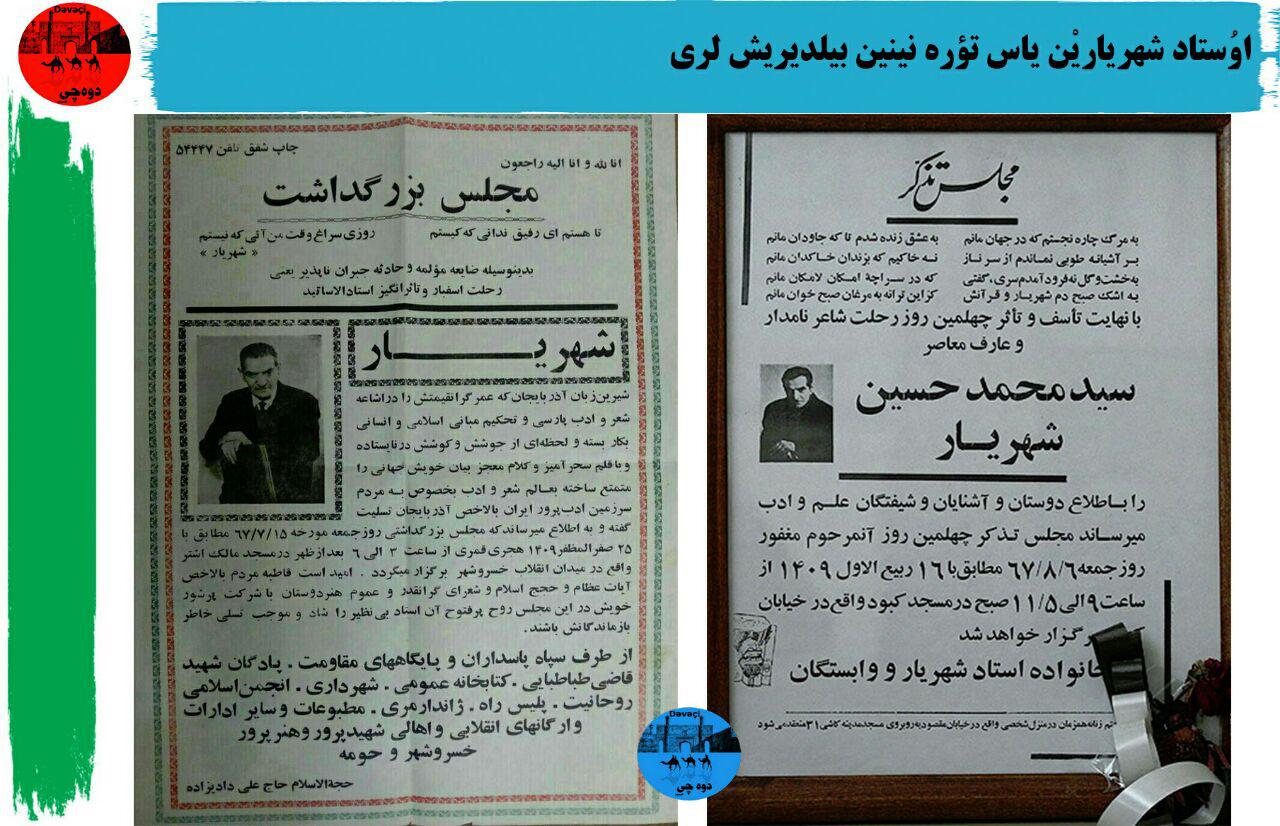 اوُستاد شهریاریْن یاس تؤره نینین بیلدیریش لری
Dəvəçi
دوه‌چی
مجلس تذکر
به مرگ چاره نجستم که در جهان مانم
به عشق زنده شدم تا که جاودان مانم
بر آشیانه طوبی نماندم از سر ناز
نه خاکیم که بزندان خاکدان مانم
به خشت و گل نه فرود آمدم سری، گفتی
که در سراچهٔ امکان لامکان مانم
به اشك صبح دم شهریار و قرآنش
کزاین ترانه به مرغان صبح خوان مانم
با نهایت تأسف و تأثر چهلمین روز رحلت شاعر نامدار
و عارف معاصر
سید محمد حسین
شهریار
را باطلاع دوستان و آشنایان و شیفتگان علم و ادب
میرساند مجلس تذکر چهلمین روز آنمرحوم مغفور
روز جمعه ۶۷/۸/۶ مطابق با ۱۶ ربیع الاول ۱۴۰۹ از
ساعت ۹ الی ۱۱/۵ صبح در مسجد کبود واقع در خیابان
برگزار خواهد شد
خانواده استاد شهریار و وابستگان
زنانه همزمان در منزل شخصی واقع در خیابان مقصودیه روبروی مسجد مدینه کاشی ۳۱ منعقد می شود
چاپ شفق تلفن ۵۴۴۴۷
انا لله و انا الیه راجعون
مجلس بزرگداشت
تا هستم ای رفیق ندانی که کیستم
روزی سراغ وقت من آئی که نیستم
« شهریار »
بدینوسیله ضایعه مؤلمه و حادثه جبران ناپذیر یعنی
رحلت اسفبار و تأثرانگیز استادالاساتید
شهریار
شیرین‌زبان آذربایجان که عمر گرانقیمتش را در اشاعه
شعر و ادب پارسی و تحکیم مبانی اسلامی و انسانی
بکار بسته و لحظه‌ای از جوشش و کوشش درنایستاده
و با قلم سحرآمیز و کلام معجز بیان خویش جهانی را
متمتع ساخته بعالم شعر و ادب بخصوص به مردم
سرزمین ادب‌پرور ایران بالاخص آذربایجان تسلیت
گفته و به اطلاع میرساند که مجلس بزرگداشتی روز جمعه مورخه ۶۷/۷/۱۵ مطابق با
۲۵ صفرالمظفر ۱۴۰۹ هجری قمری از ساعت ۳ الی ۶ بعدازظهر در مسجد مالک اشتر
واقع در میدان انقلاب خسروشهر برگزار میگردد . امید است قاطبه مردم بالاخص
آیات عظام و حجج اسلام و شعرای گرانقدر و عموم هنردوستان با شرکت پرشور
خویش در این مجلس روح پرفتوح آن استاد بی‌نظیر را شاد و موجب تسلی خاطر
بازماندگانش باشند .
از طرف سپاه پاسداران و پایگاههای مقاومت . پادگان شهید
قاضی‌طباطبایی . کتابخانه عمومی . شهرداری . انجمن‌اسلامی
روحانیت . پلیس راه . ژاندارمری . مطبوعات و سایر ادارات
و ارگانهای انقلابی و اهالی شهیدپرور و هنرپرور
خسروشهر و حومه
حجةالاسلام حاج علی دادیزاده
Dəvəçi
دوه چی